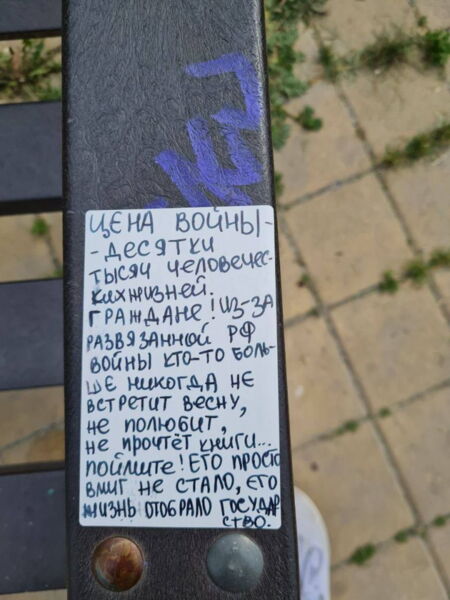 ЦЕНА ВОЙНЫ-
- ДЕСЯТКИ
ТЫСЯЧ ЧЕЛОВЕЧЕС-
КИХ ЖИЗНЕЙ.
ГРАЖДАНЕ! ИЗ-ЗА
РАЗВЯЗАННОЙ РФ
ВОЙНЫ КТО-ТО БОЛЬ-
ШЕ НИКОГДА НЕ
ВСТРЕТИТ ВЕСНУ,
НЕ ПОЛЮБИТ,
НЕ ПРОЧТЁТ КНИГИ...
ПОЙМИТЕ! ЕГО ПРОСТО
ВМИГ НЕ СТАЛО, ЕГО
ЖИЗНЬ ОТОБРАЛО ГОСУДАР
СТВО.